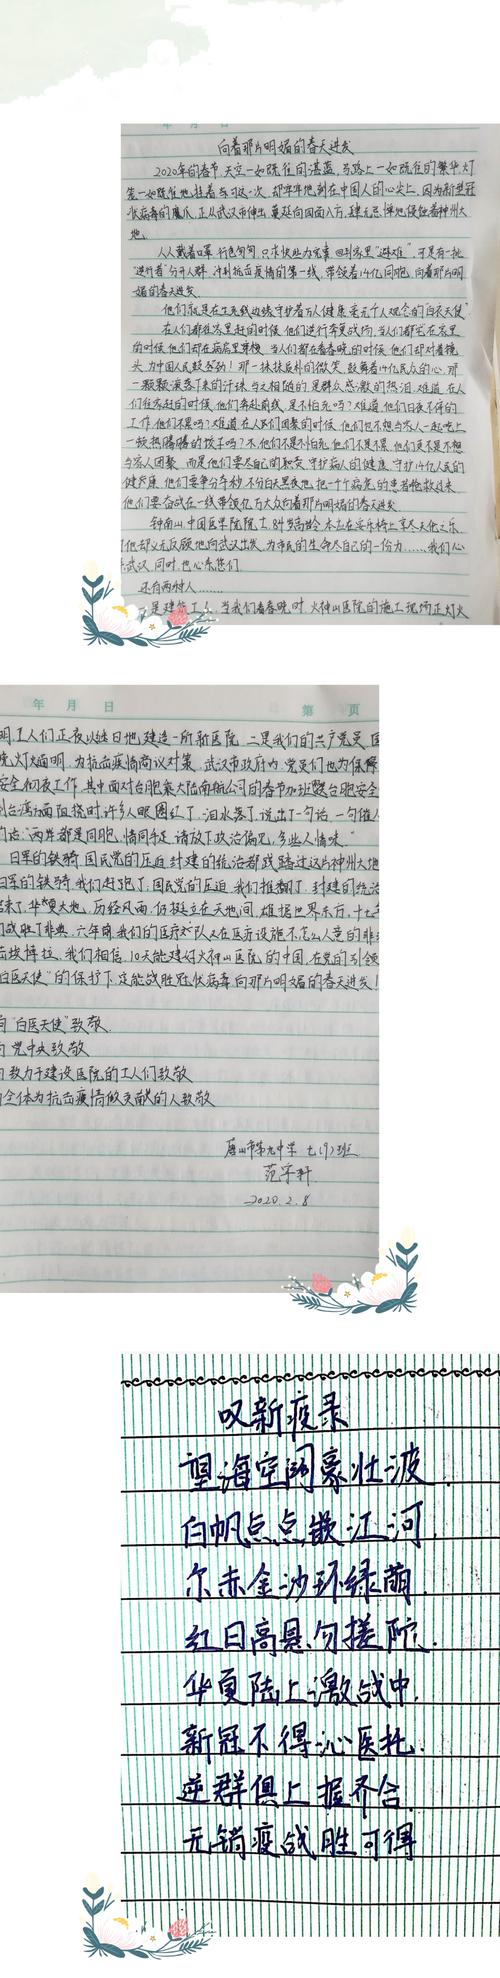 年 月 日
向着那片明媚的春天进发
2020年的春节,天空一如既往的湛蓝,马路上一如既往的繁华,灯
笼一如既往地挂着,与以,这一次,却牢牢地刻在中国人的心尖上,因为新型冠
状病毒的魔爪,正从武汉市伸出,蔓延向四面八方,肆无忌惮地侵蚀着神州大
地。
人人戴着口罩,行色匆匆,只求快些办完事,回到家里“避难”,可是有一批
“逆行者”分开人群,冲到抗击疫情的第一线,带领着14亿同胞,向着那片明
媚的春天进发。
他们就是在生死线边缘守护着万人健康,毫无个人观念的“白衣天使”
在人们都往家里赶的时候,他们逆行奔赴战场,当人们都宅在家里
的时候,他们却在病房里穿梭,当人们都在看春晚的时候,他们却对着镜
头,为中国人民鼓劲!那一抹抹质朴的微笑,鼓舞着14亿民众的心,那
一颗颗滚落下来的汗珠,与之相随的是群众感激的热泪。难道,在人
们往家赶的时候,他们奔赴前线,是不怕死吗?难道,他们日夜不停的
工作,他们不累吗?难道,在人民们团聚的时候,他们也不想与家人一起吃上
一顿热腾腾的饺子吗?不,他们不是不怕死,他们不是不累,他们更不是不想
与家人团聚,而是他们要尽自己的职责,守护病人的健康,守护14亿人民的
健康,他们要争分夺秒,不分白天黑夜地,把一个个病危的患者抢救过来
他们要奋战在一线,带领亿万大众向着那片明媚的春天进发。
钟南山,中国医学院院士,84岁高龄,本应在安乐椅上享尽天伦之乐
但他却义无反顾地向武汉出发,为市民的生命尽自己的一份力……我们心
系武汉,同时,也心系您们。
还有两种人……
一是建筑工人,当我们看春晚时,火神山医院的施工现场正灯火
年 月 日 第 页
明,工人们正夜以继日地,建造一所新医院。二是我们的共产党员,国
院,灯火通明,为抗击疫情商议对策,武汉市政府内,党员们也为保障
安全,彻夜工作,其中面对台胞乘大陆南航公司的春节加班
到台湾方面阻挠时,许多人眼圈红了,泪水落了,说出了一句话,一句催人
的话:“两岸都是同胞,情同手足,请放下政治偏见,多些人情味。”
日军的铁骑,国民党的压迫,封建的统治都践踏过这片神州大地
日军的铁骑,我们赶跑了;国民党的压迫,我们推翻了,封建的统治
结束了,华夏大地,历经风雨,仍挺立在天地间,雄据世界东方,十七年
们战胜了非典,六年前我们的医疗对队又在医疗设施不怎么人意的非洲
击埃博拉,我们相信,10天能建好火神山医院的中国,在党的引领
白医天使”的保护下,定能战胜冠状病毒,向那片明媚的春天进发!
向“白医天使”致敬
向党中央致敬
向致力于建设医院的工人们致敬
向全体为抗击疫情做贡献的人致敬
唐山市第九中学 七(9)班
范宇轩
2020.2.8
叹新疫录
望海空阔豪壮波.
白帆点点嵌江河.
尔赤金沙环绿萌.
红日高悬勿搓陀.
华夏陆上激战中.
新冠不得沁医托.
逆群俱上握齐合.
无销疫战胜可得